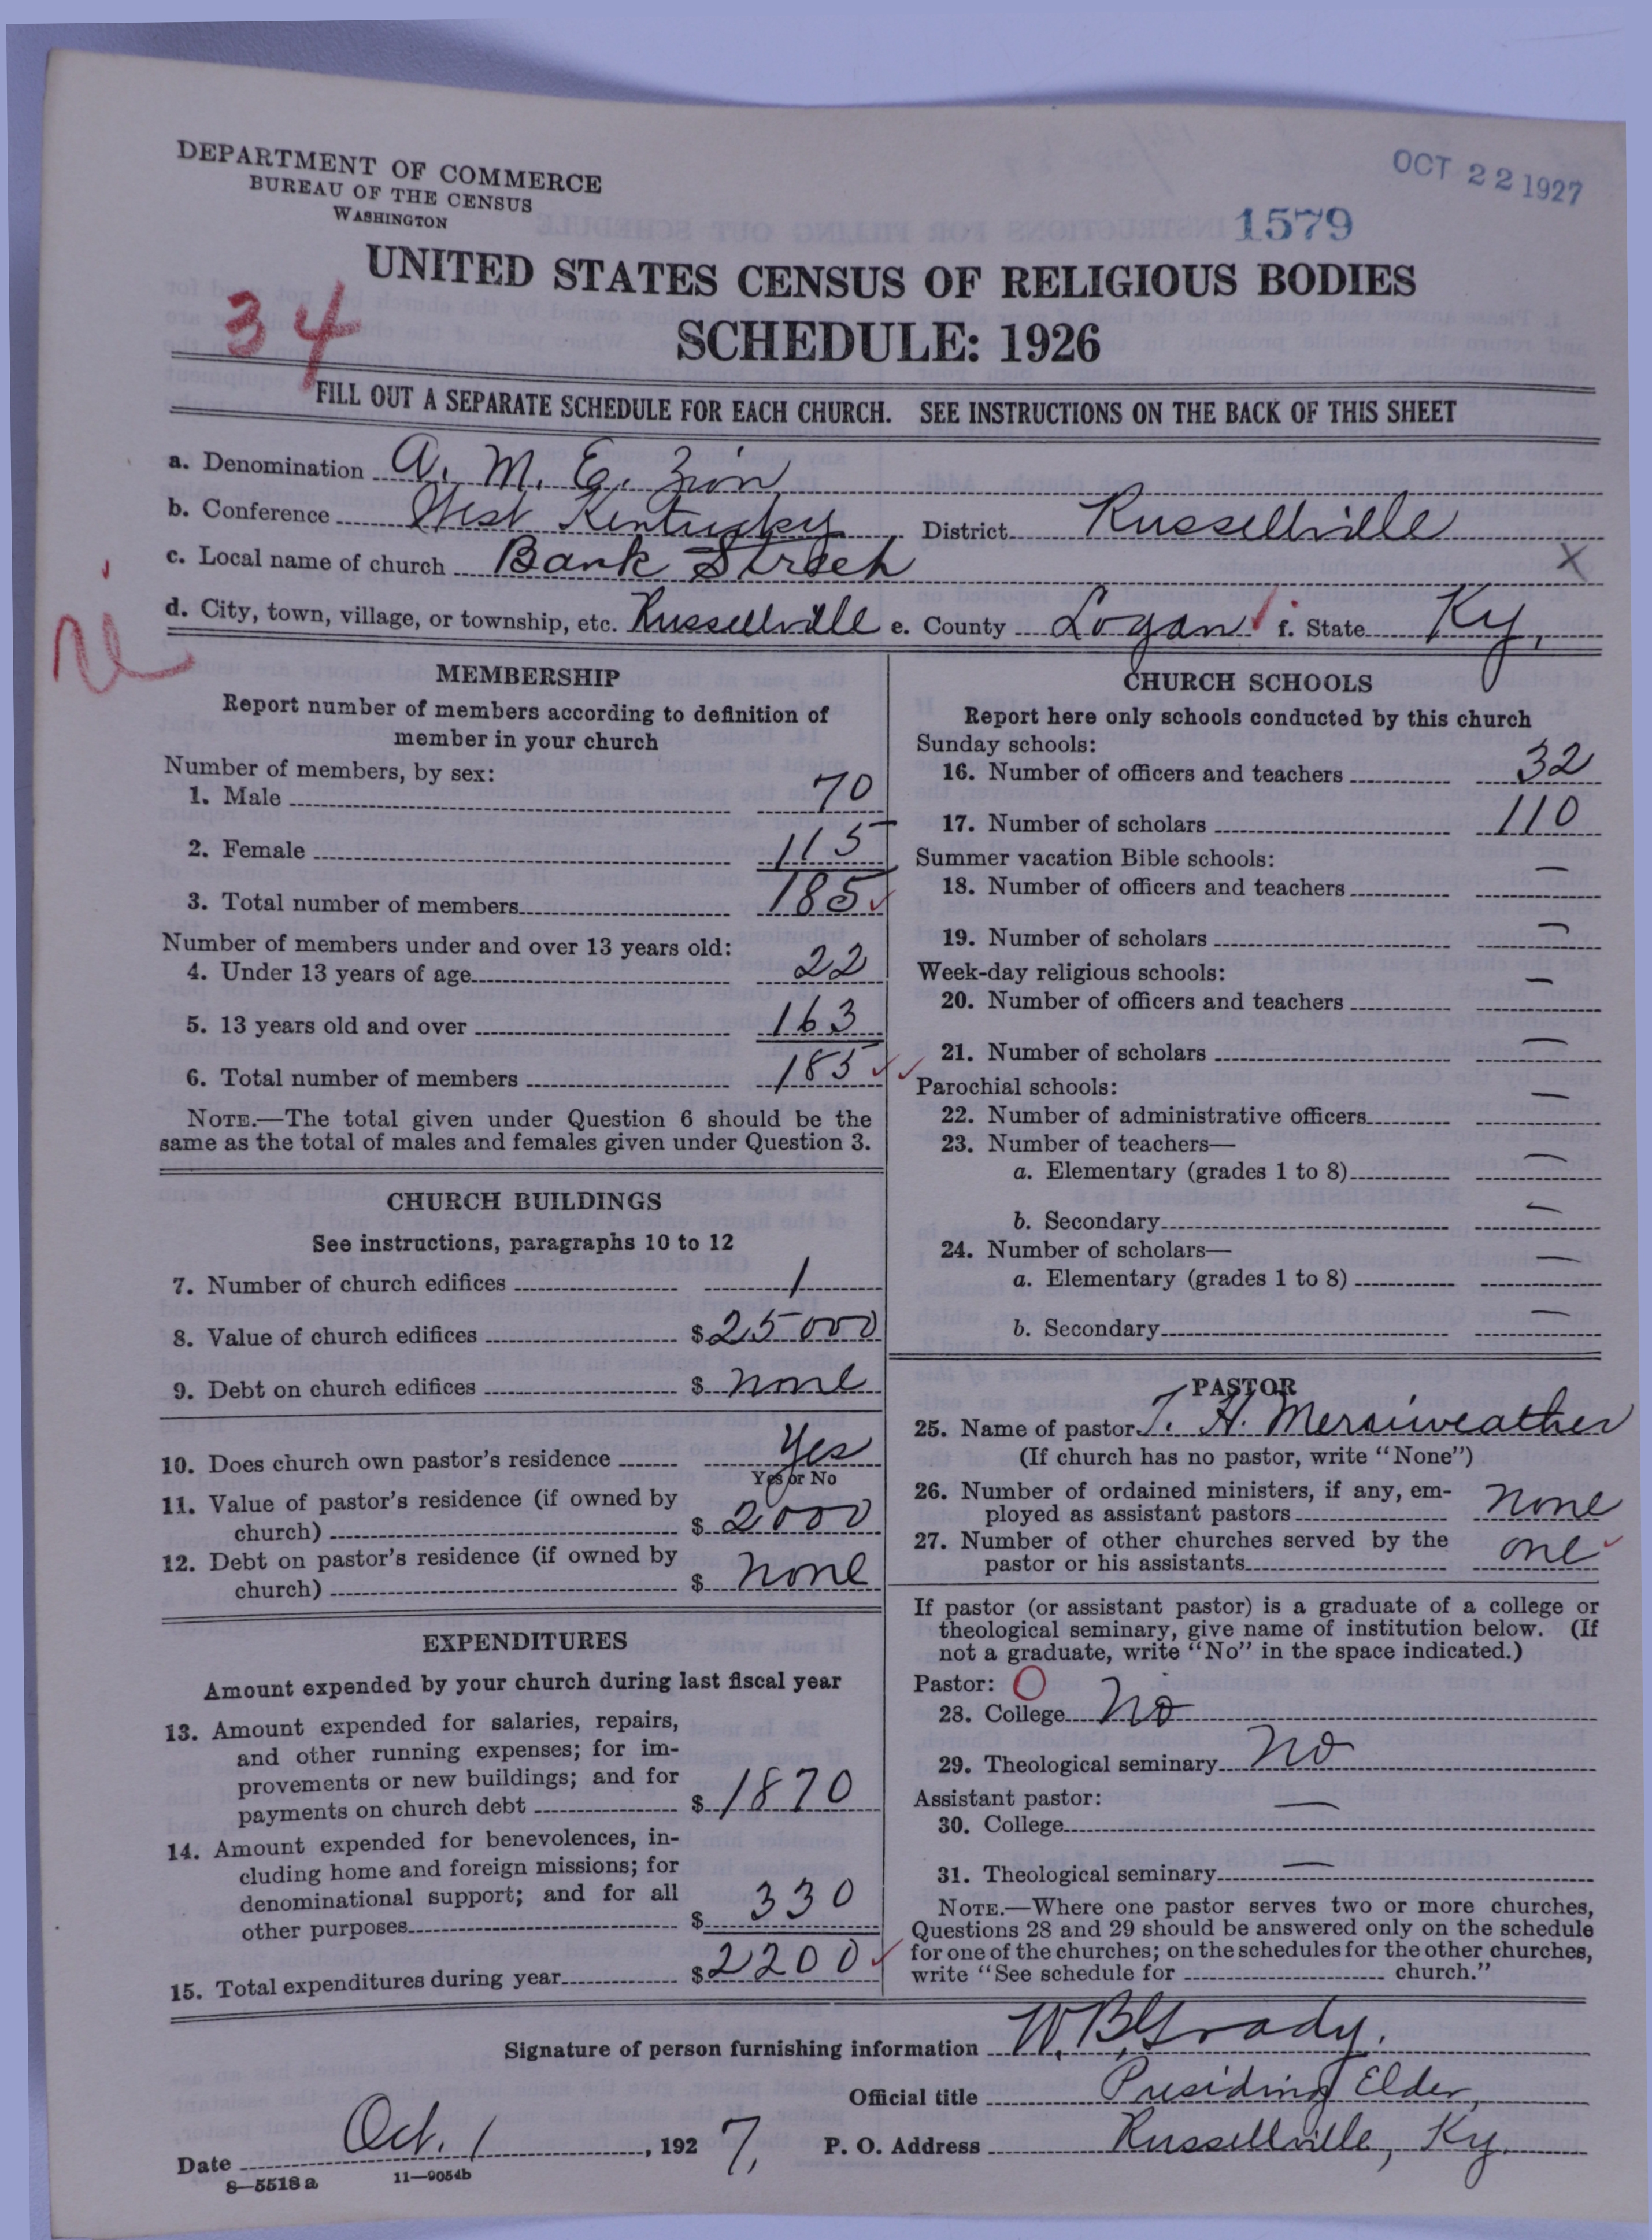 DEPARTMENT OF COMMERCE
BUREAU OF THE CENSUS
WASHINGTON
OCT 22 1927
1579
UNITED STATES CENSUS OF RELIGIOUS BODIES
34
SCHEDULE: 1926
FILL OUT A SEPARATE SCHEDULE FOR EACH CHURCH. SEE INSTRUCTIONS ON THE BACK OF THIS SHEET
a. Denomination A. M. E. Zion
b. Conference West Kentucky District Russellville
c. Local name of church Bank Street X
d. City, town, village, or township, etc. Russellville e. County Logan f. State Ky.
MEMBERSHIP
Report number of members according to definition of
member in your church
Number of members, by sex:
1. Male 70
2. Female 115
3. Total number of members 185
Number of members under and over 13 years old:
4. Under 13 years of age 22
5. 13 years old and over 163
6. Total number of members 185
NOTE.—The total given under Question 6 should be the
same as the total of males and females given under Question 3.
CHURCH BUILDINGS
See instructions, paragraphs 10 to 12
7. Number of church edifices 1
8. Value of church edifices $ 25000
9. Debt on church edifices $ none
10. Does church own pastor's residence Yes
Yes or No
11. Value of pastor's residence (if owned by
church) $ 2000
12. Debt on pastor's residence (if owned by
church) $ none
EXPENDITURES
Amount expended by your church during last fiscal year
13. Amount expended for salaries, repairs,
and other running expenses; for im-
provements or new buildings; and for
payments on church debt $ 1870
14. Amount expended for benevolences, in-
cluding home and foreign missions; for
denominational support; and for all
other purposes $ 330
15. Total expenditures during year $ 2200
CHURCH SCHOOLS
Report here only schools conducted by this church
Sunday schools:
16. Number of officers and teachers 32
17. Number of scholars 110
Summer vacation Bible schools:
18. Number of officers and teachers —
19. Number of scholars —
Week-day religious schools:
20. Number of officers and teachers —
21. Number of scholars —
Parochial schools:
22. Number of administrative officers —
23. Number of teachers—
a. Elementary (grades 1 to 8) —
b. Secondary —
24. Number of scholars—
a. Elementary (grades 1 to 8) —
b. Secondary —
PASTOR
25. Name of pastor T. H. Merriweather
(If church has no pastor, write "None")
26. Number of ordained ministers, if any, em-
ployed as assistant pastors none
27. Number of other churches served by the
pastor or his assistants one
If pastor (or assistant pastor) is a graduate of a college or
theological seminary, give name of institution below. (If
not a graduate, write "No" in the space indicated.)
Pastor: O
28. College No
29. Theological seminary No
Assistant pastor:
30. College —
31. Theological seminary —
NOTE.—Where one pastor serves two or more churches,
Questions 28 and 29 should be answered only on the schedule
for one of the churches; on the schedules for the other churches,
write "See schedule for church."
Signature of person furnishing information W. B. Grady.
Official title Presiding Elder,
Date Oct. 1, 1927, P. O. Address Russellville, Ky.
8—5518 a 11—9054b